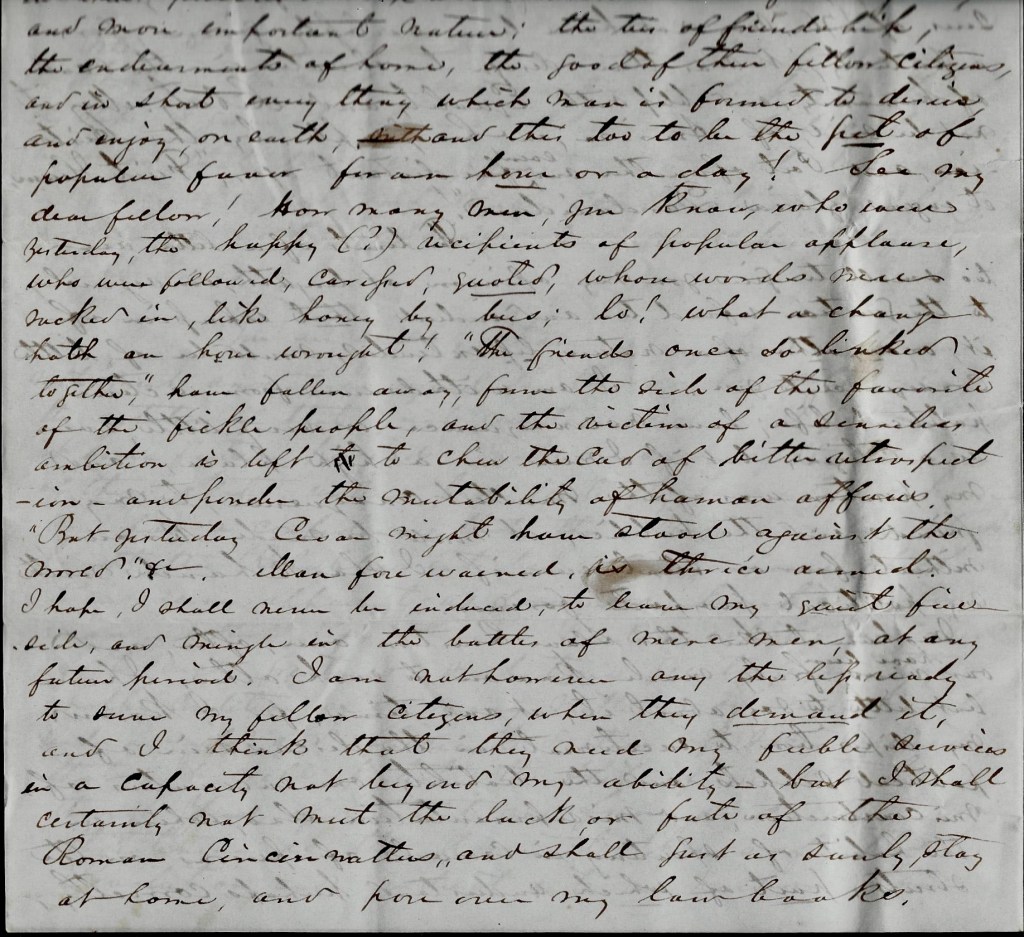 and more important nature; the ties of friendship,
the endearments of home, the good of their fellow citizens,
and in short every thing which man is formed to desire
and enjoy, on earth, and this too to be the pet of
popular favor for an hour or a day! See my
dear fellow! How many men, you know, who were
yesterday, the happy (?) recipients of popular applause,
who were followed, caressed, quoted, whose words were
sucked in, like honey by bees; lo! what a change
hath an hour wrought! "The friends once so linked
together," have fallen away, from the side of the favorite
of the fickle people, and the victim of a senseless
ambition is left to chew the Cud of bitter retrospect
-ion - and ponder the mutability of human affairs.
"But yesterday Cesar might have stood against the
world," &c. Man fore warned, is thrice armed.
I hope, I shall never be induced, to leave my quiet fire
side, and mingle in the battles of mere men, at any
future period. I am not however any the less ready
to serve my fellow citizens, when they demand it,
and I think that they need my feeble services
in a capacity not beyond my ability - but I shall
certainly not meet the luck, or fate of the
Roman Cincinnattus, and shall just as surely, stay
at home, and pore over my law books.